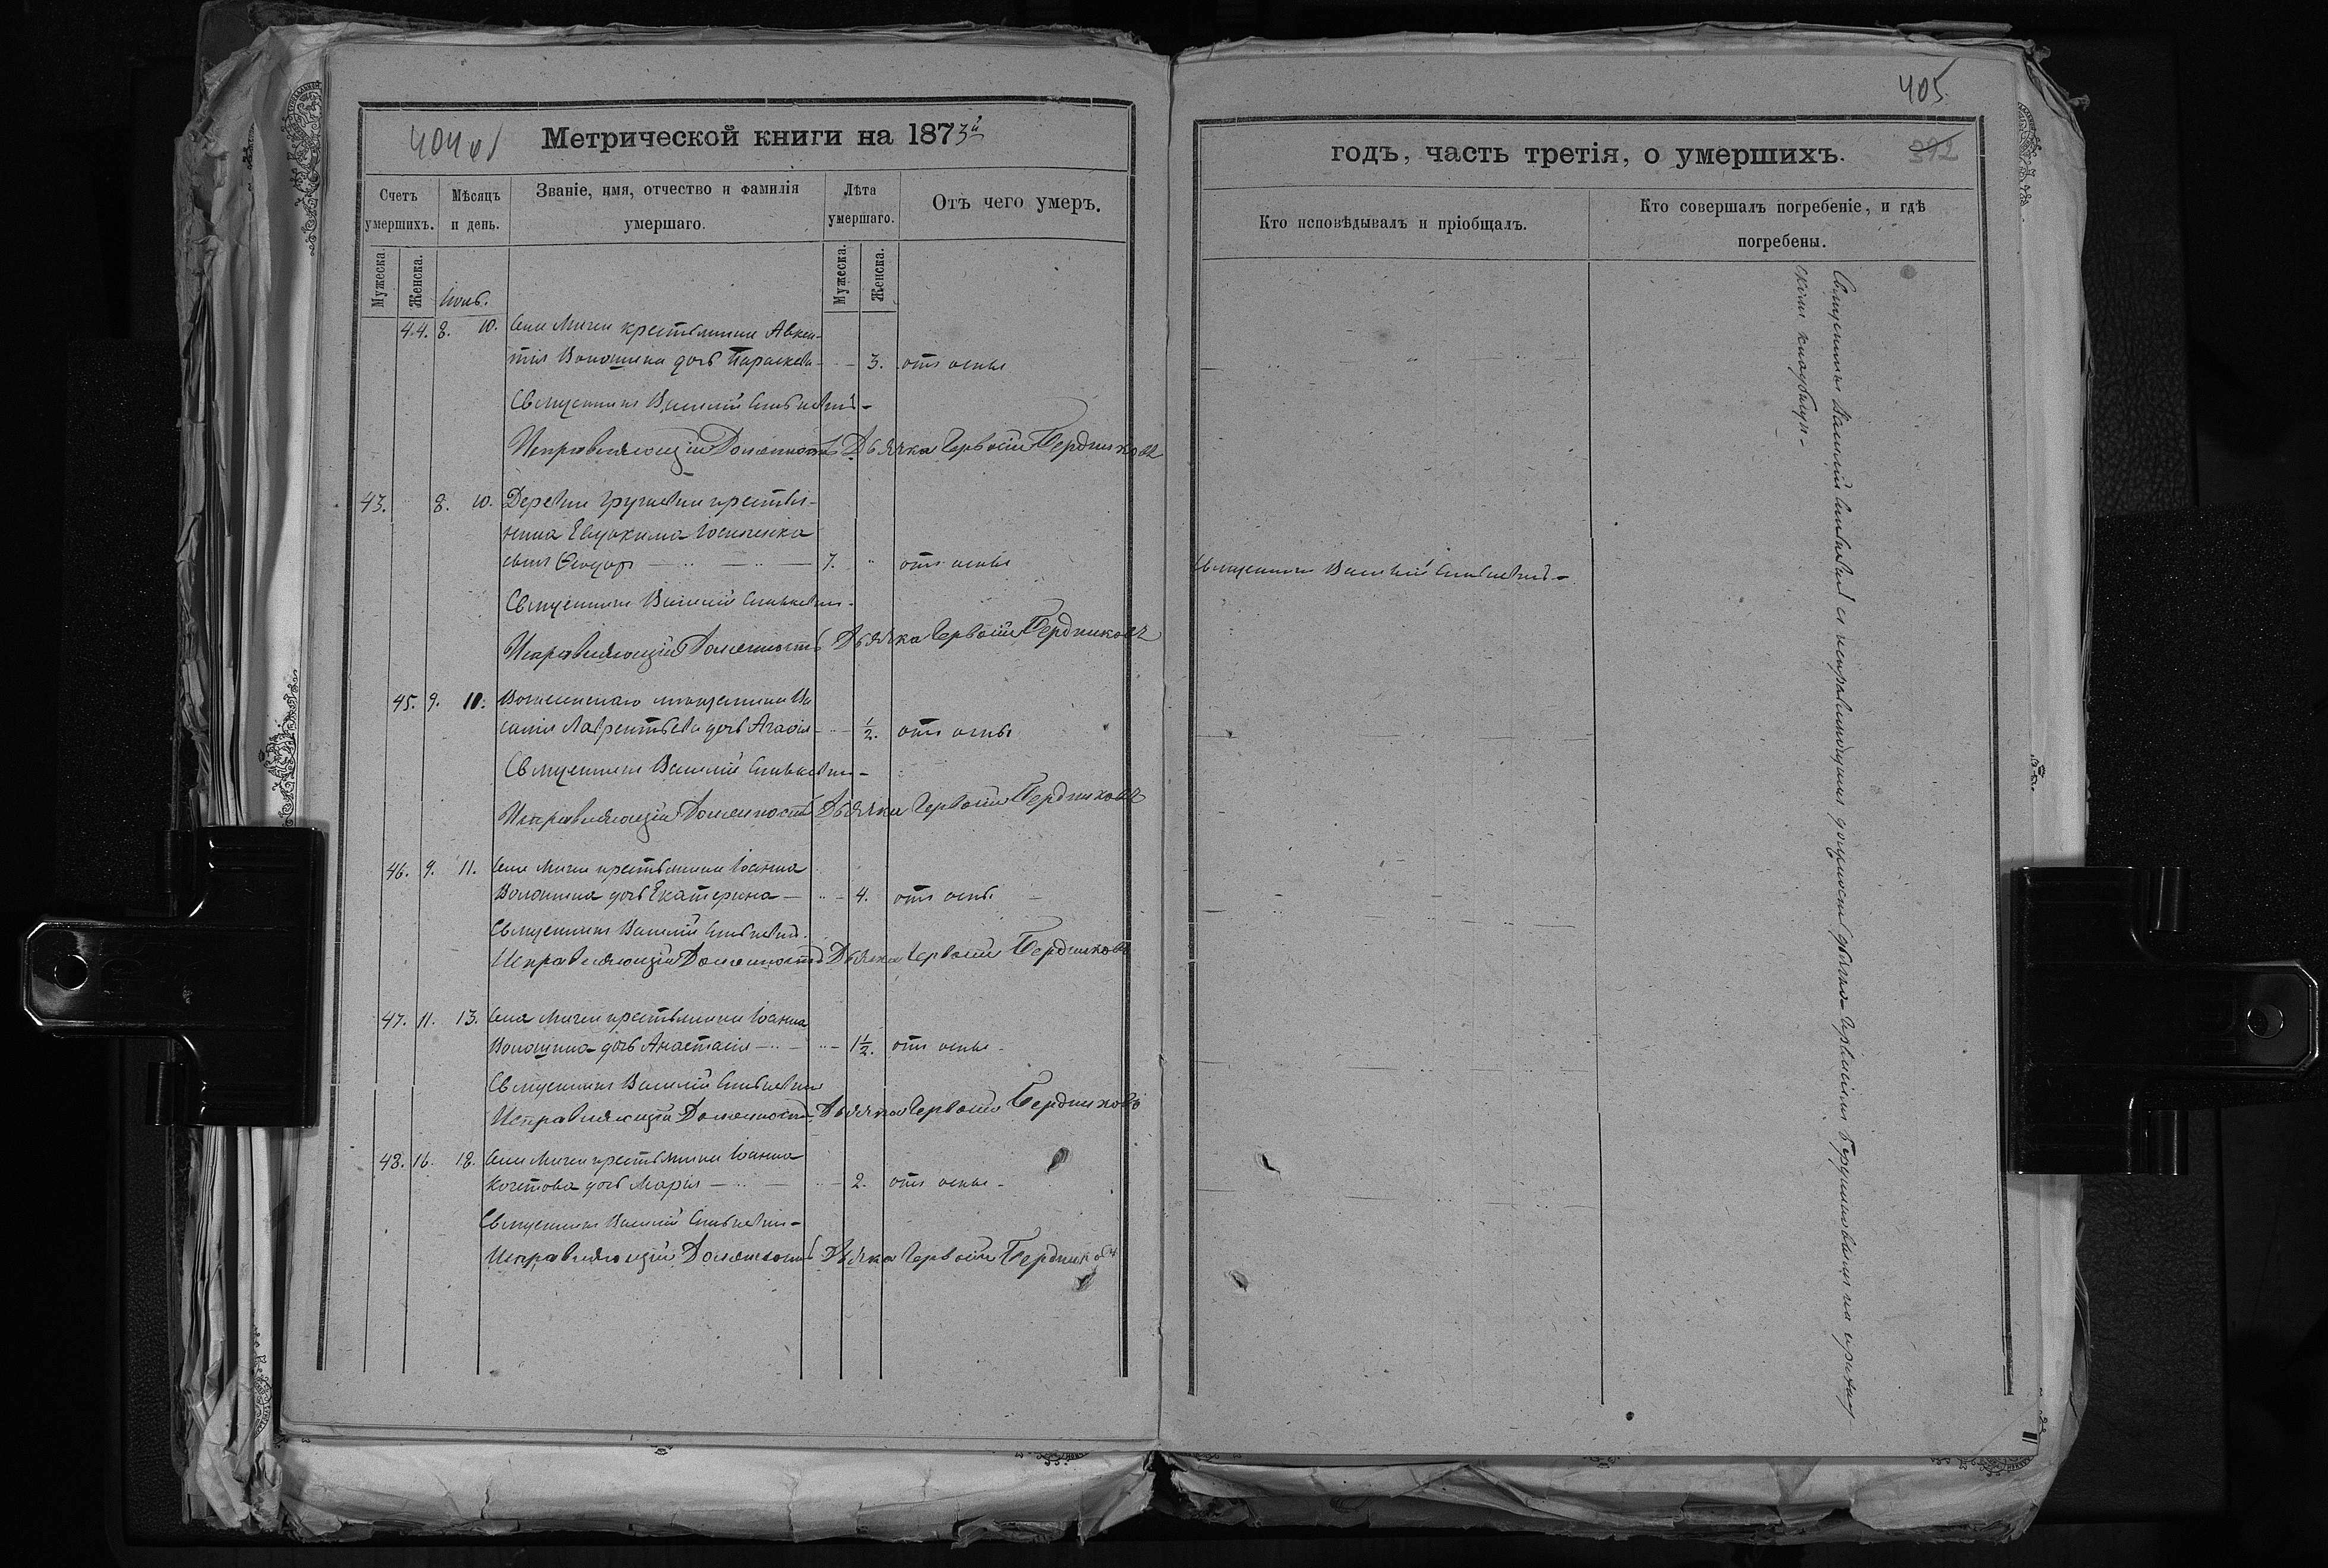 404 об
Метрической книги на 1873й
Счетъ умершихъ.
Мѣсяцъ и день.
Званіе, имя, отчество и фамилія умершаго.
Лѣта умершаго.
Отъ чего умеръ.
Мужеска.
Женска.
Мужеска.
Женска.
44. 8. 10. Села Мигеи крестьянина Авксен-
тія Волошина дочь Параскева - - 3. отъ оспы
Священникъ Василій
Исправляющій Должность Дьячка Гервасій Бердниковъ
43. 8. 10. Деревни крестья-
нина Евдокима
сынъ Ѳеодоръ — 7. " отъ оспы
Священникъ Василій
Исправляющій Должность Дьячка Гервасій Бердниковъ
45. 9. 11. Вознесенскаго Ва
силія Лаврентьева дочь Агафія - - 1/2. отъ оспы
Священникъ Василій
Исправляющій Должность Дьячка Гервасій Бердниковъ
46. 9. 11. Села Мигеи крестьянина Іоанна
Волошина дочь Екатерина — - 4. отъ оспы
Священникъ Василій
Исправляющій Должность Дьячка Гервасій Бердниковъ
47. 11. 13. Села Мигеи крестьянина Іоанна
Волошина дочь Анастасія — - 1 1/2. отъ оспы -
Священникъ Василій
Исправляющій Должность Дьячка Гервасій Бердниковъ
48. 16. 18. Села Мигеи крестьянина Іоанна
Кочетова дочь Марія — - 2. отъ оспы -
Священникъ Василій
Исправляющій Должность Дьячка Гервасій Бердниковъ
405
годъ, часть третія, о умершихъ.
392
Кто исповѣдывалъ и пріобщалъ.
Кто совершалъ погребеніе, и гдѣ
погребены.
Священникъ Василій
Священникъ Василій съ исправляющимъ должность дьячка Гервасіемъ Бердниковымъ на приход
скомъ кладбищѣ -